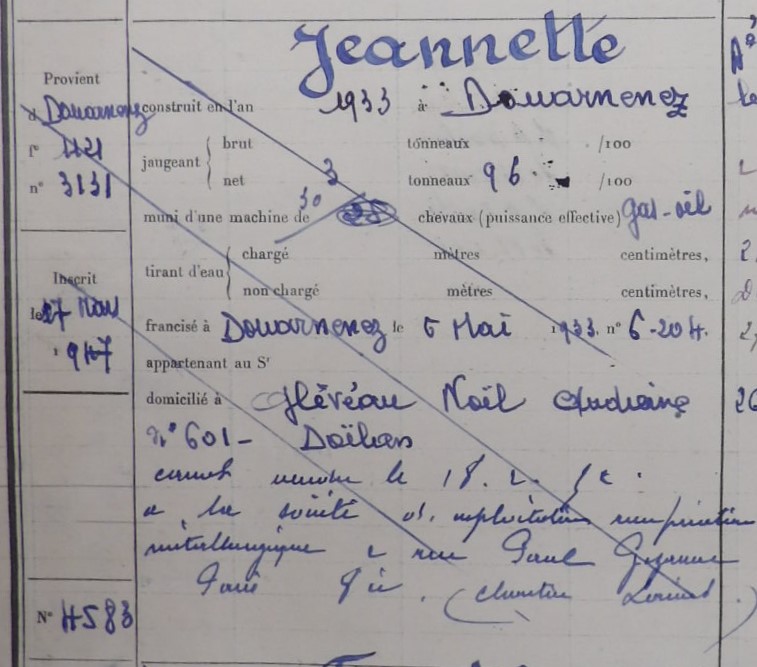 Jeannette
Provient
d Douarnenez
f° 1121
n° 3131
Inscrit
le 27 Mars
1947
N° 4583
construit en l'an 1933 à Douarnenez
jaugeant brut tonneaux /100
net 3 tonneaux 96 /100
muni d'une machine de 30 chevaux (puissance effective) gas-oil
tirant d'eau chargé mètres centimètres,
non chargé mètres centimètres,
francisé à Douarnenez le 5 Mai 1933. n° 6-204.
appartenant au Sr
domicilié à Glévéau Noël
n° 601- Doëlan
le 18.2.
a la société
métallurgique 2 rue Paul
Paris